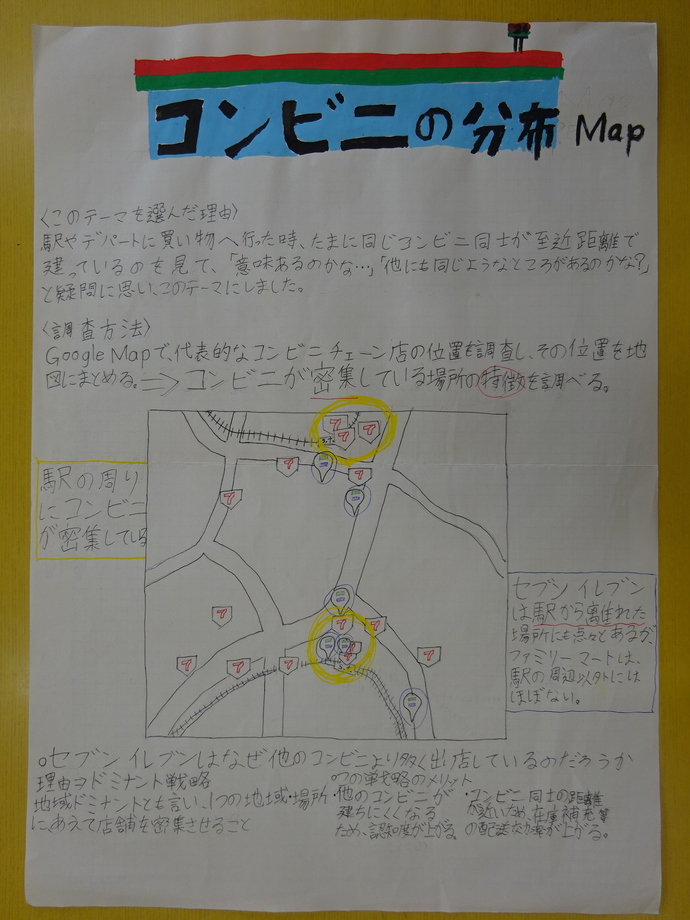 コンビニの分布 Map
〈このテーマを選んだ理由〉
駅やデパートに買い物へ行った時、たまに同じコンビニ同士が至近距離で
建っているのを見て、「意味あるのかな…」「他にも同じようなところがあるのかな?」
と疑問に思い、このテーマにしました。
〈調査方法〉
Google Mapで、代表的なコンビニチェーン店の位置を調査し、その位置を地
図にまとめる。⇒コンビニが密集している場所の特徴を調べる。
駅の周り
にコンビニ
が密集している
セブンイレブン
は駅から離れた
場所にも点々とあるが、
ファミリーマートは、
駅の周辺以外には
ほぼない。
○セブンイレブンはなぜ他のコンビニより多く出店しているのだろうか
理由→ドミナント戦略
地域ドミナントとも言い、1つの地域・場所
に、あえて店舗を密集させること
の戦略のメリット
・他のコンビニが
建ちにくくなる
ため、認知度が上がる。
・コンビニ同士の距離
が近いため、在庫補充等
の配送効率が上がる。